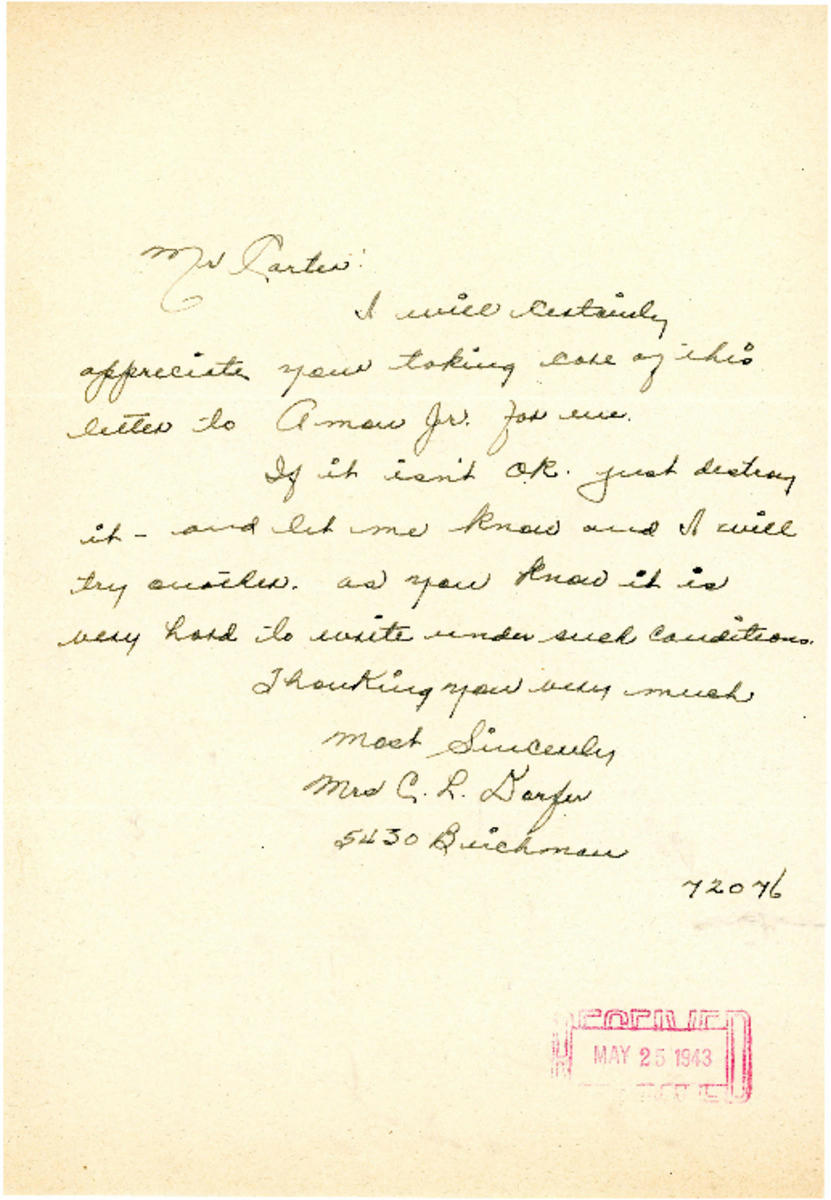 Mr Carter:
I will certainly
appreciate your taking care of this
letter to Amon Jr. for me.
If it isn't OK. just destroy
it - and let me know and I will
try another. as you know it is
very hard to write under such conditions.
Thanking you very much
Most Sincerely
Mrs C. L. Dorfer
5430 Birchman
72076
RECEIVED
MAY 25 1943